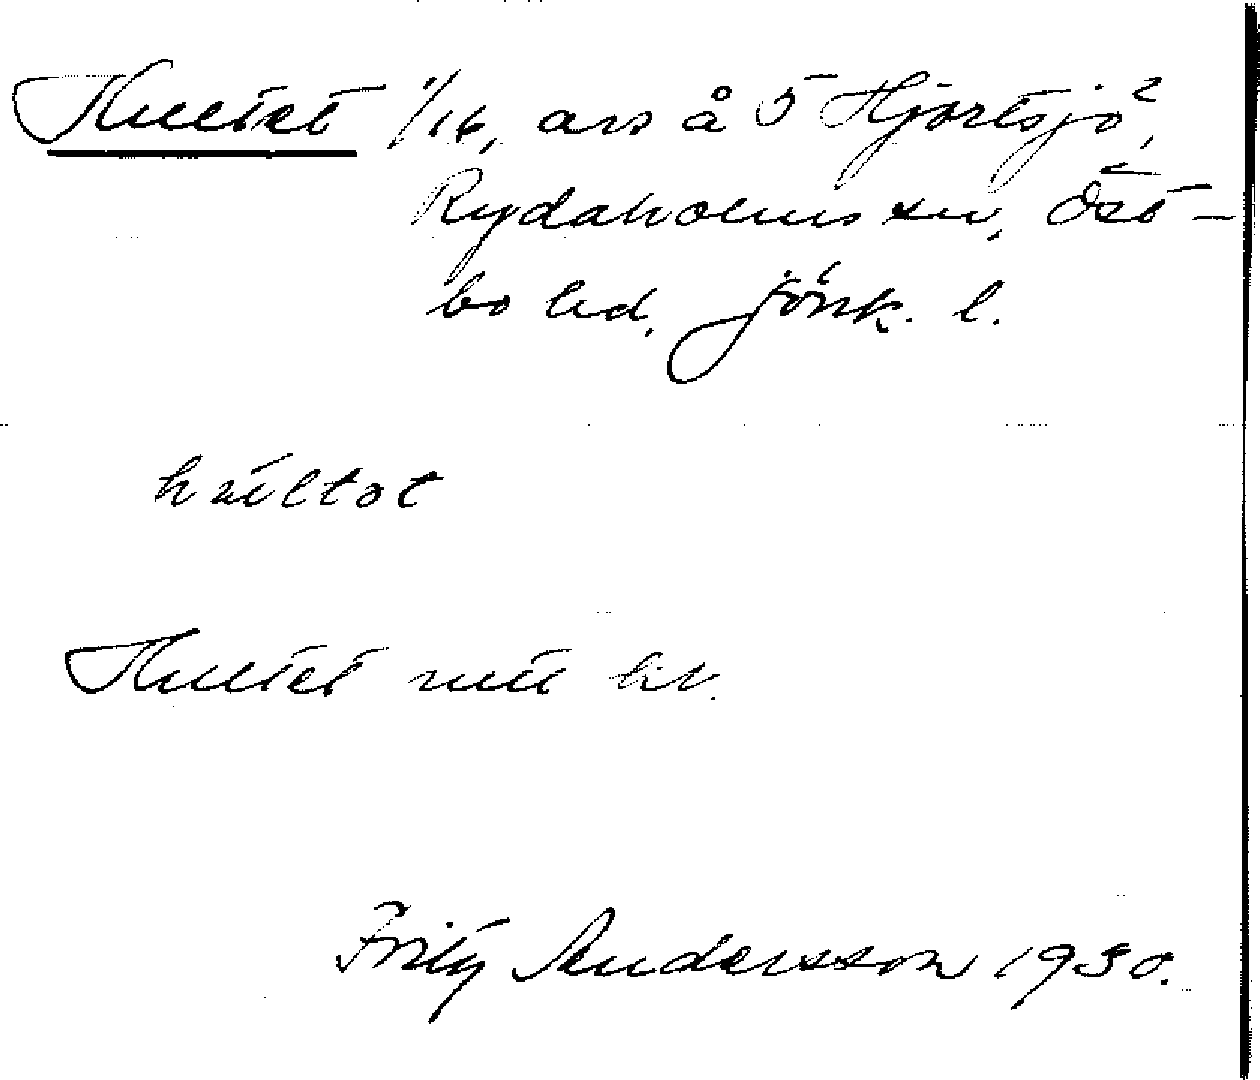 Hultet 1/16, avs å 5 Hjortsjö,
Rydaholms sn, Öst-
bo hd, Jönk. l.
hultot
Hultet
Fritz Andersson 1930.